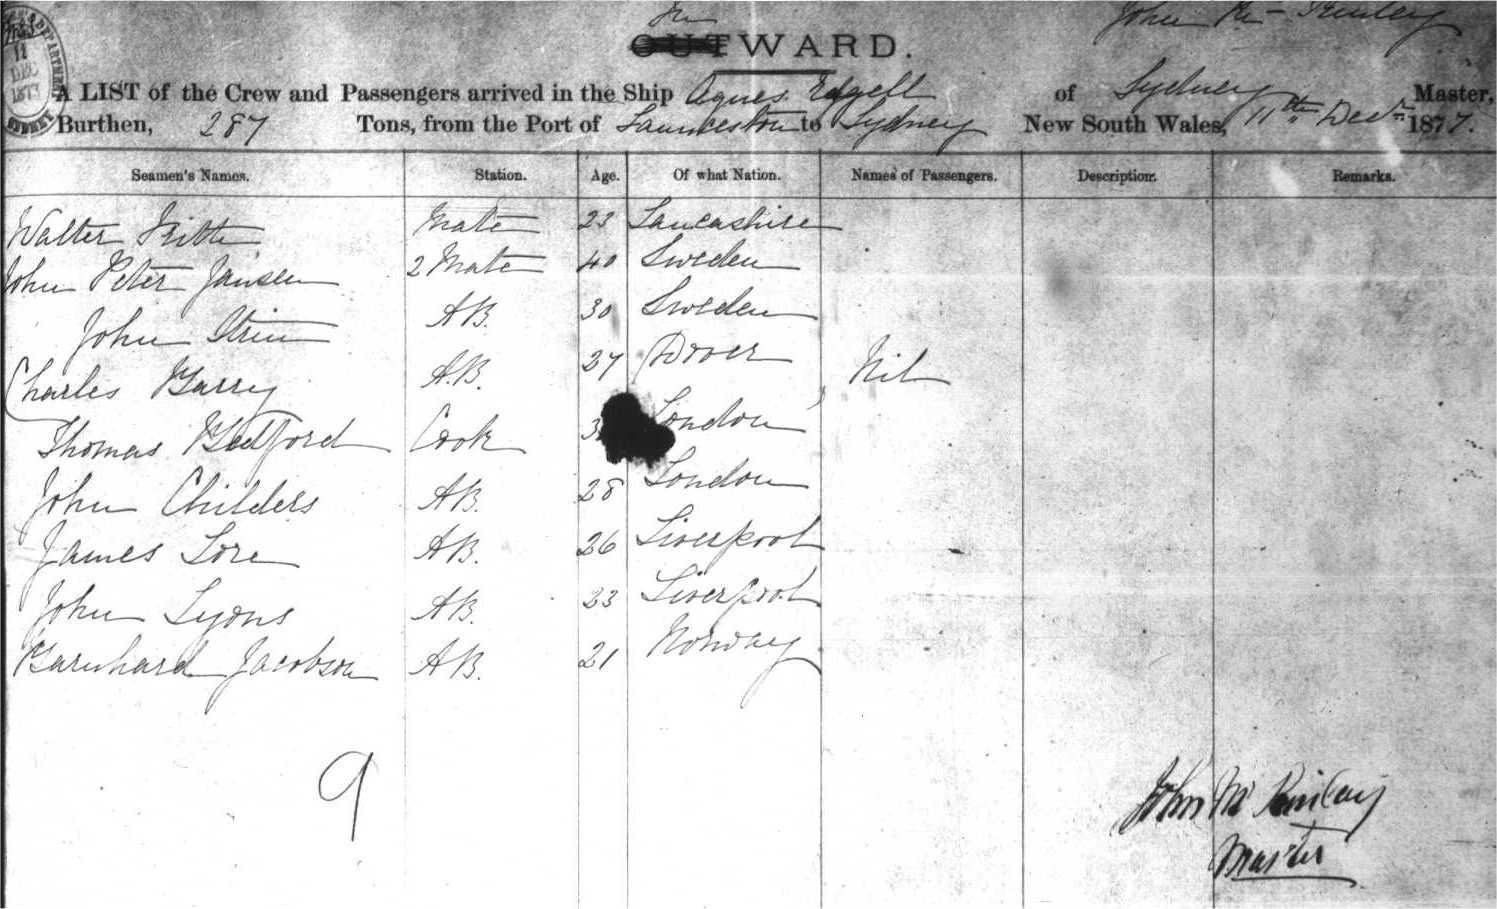 In
OUTWARD.
John Mc Kinley
A LIST of the Crew and Passengers arrived in the Ship Agnes Edgell of Sydney Master,
Burthen, 287 Tons, from the Port of Launceston to Sydney New South Wales, 11th Decr 1877.
Seamen's Names. Station. Age. Of what Nation. Names of Passengers. Description. Remarks.
Walter Mate 23 Lancashire
John Peter Jansen 2 Mate 40 Sweden
John A B. 30 Sweden
Charles Barry A.B. 27 Dover Nil
Thomas Bedford Cook 3 London
John Childers A B. 28 London
James Lore A B. 26 Liverpool
John Lyons A B. 23 Liverpool
Barnhard Jacobson A B. 21 Norway
9
John Mc Kinlay
Master
11
DEC
1877
SYDNEY